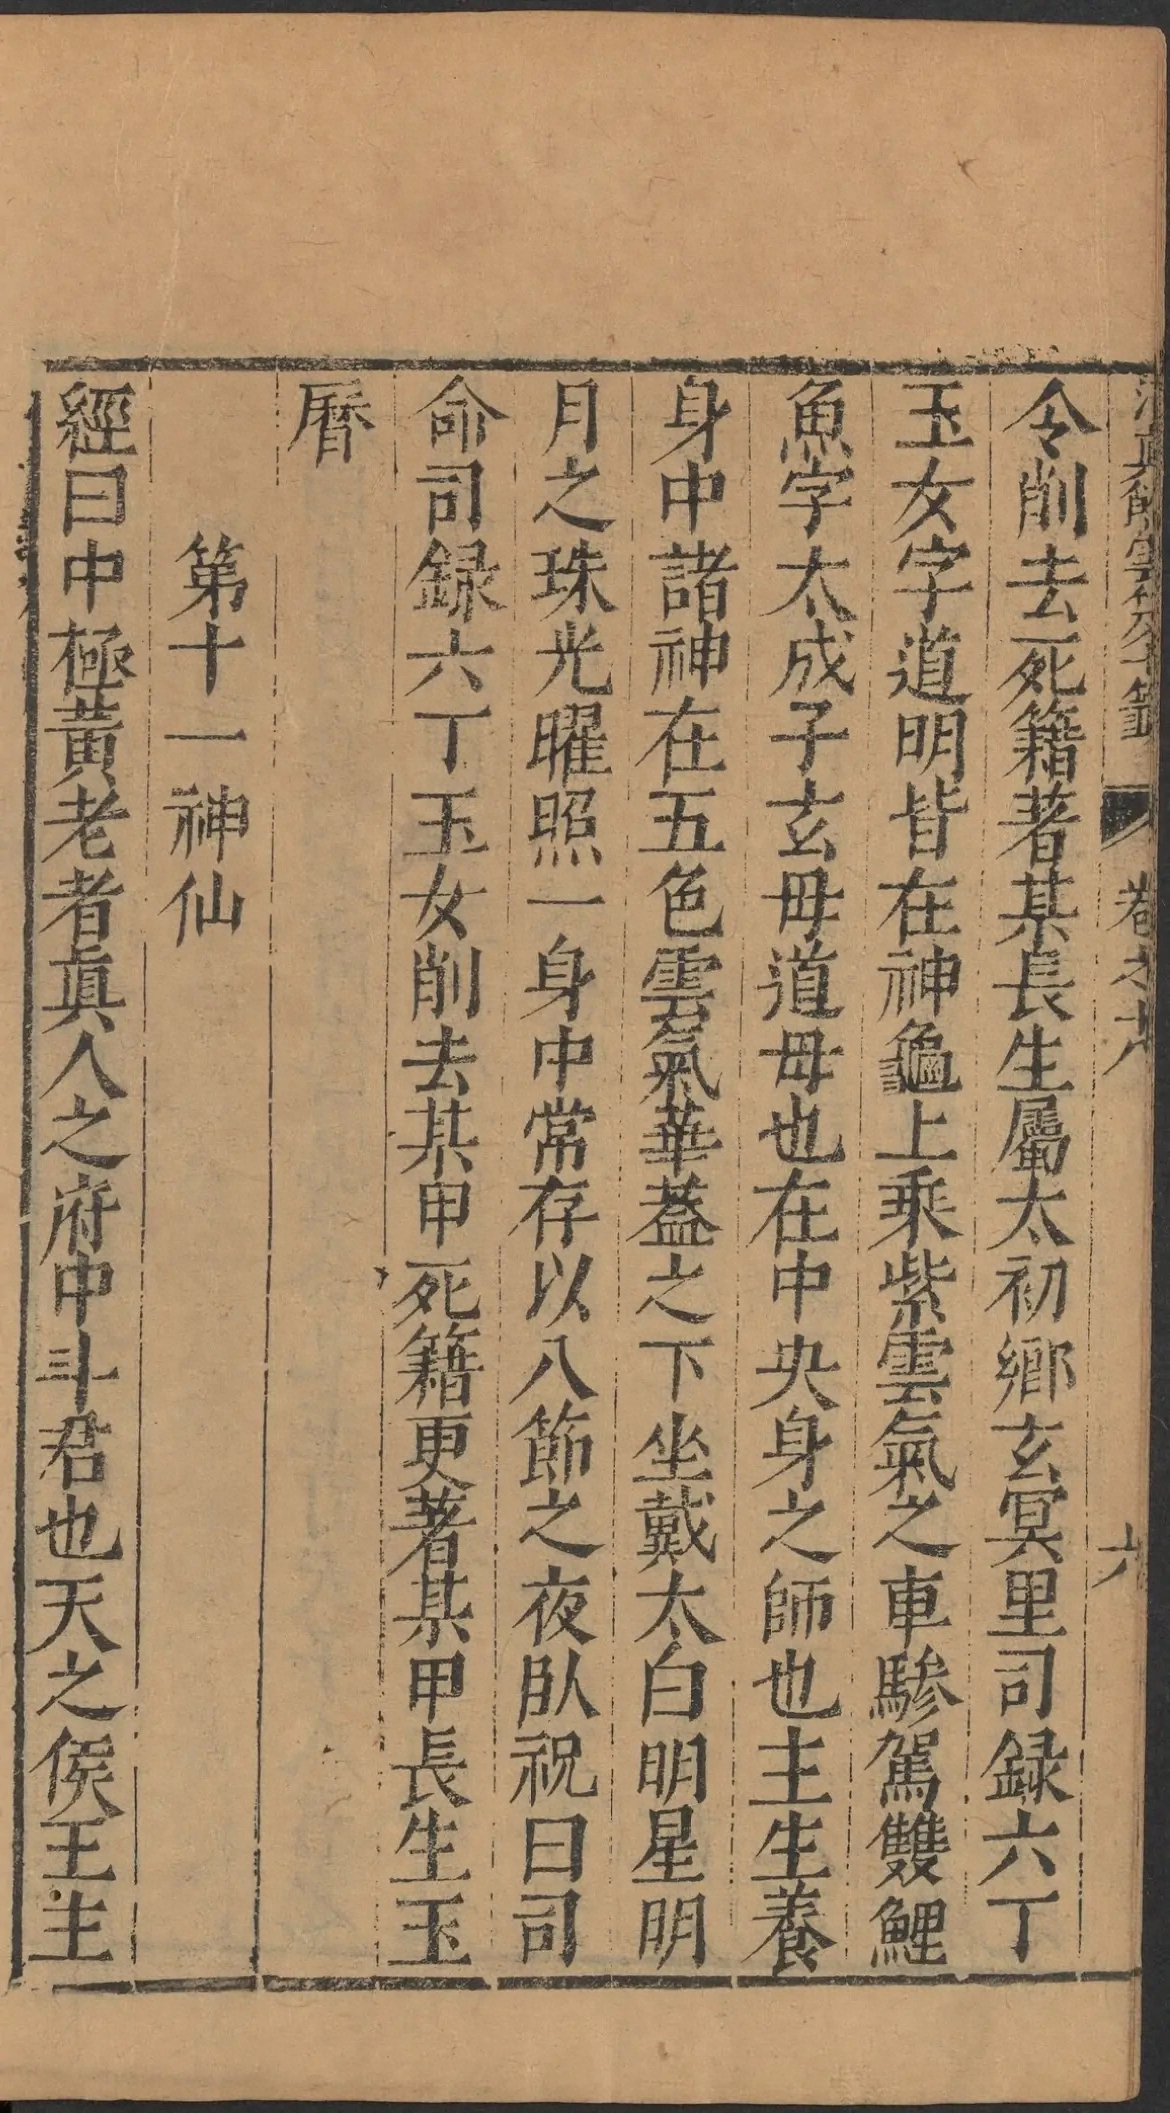 清真館雲笈七籤 卷之十八 六
令削去死籍著某長生屬太初鄉玄冥里司録六丁
玉女字道明皆在神龜上乘紫雲氣之車驂駕雙鯉
魚字太成子玄母道母也在中央身之師也主生養
身中諸神在五色雲氣華蓋之下坐戴太白明星明
月之珠光曜照一身中常存以八節之夜臥祝曰司
命司録六丁玉女削去某甲死籍更著某甲長生玉
曆
第十一神仙
經曰中極黃老者真人之府中斗君也天之侯王主